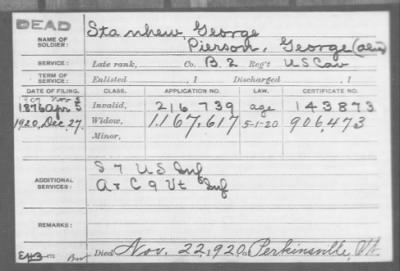 DEAD
NAME OF SOLDIER: Stanhew, George
Pierson, George (alias)
SERVICE: Late rank, Co. B. 2 Reg't U S Cav
TERM OF SERVICE: Enlisted , 1 Discharged , 1
DATE OF FILING. CLASS. APPLICATION NO. LAW. CERTIFICATE NO.
1876 Apr 5 Invalid, 216 739 age 143873
1920, Dec. 27. Widow, 1,167,617 5-1-20 906,473
Minor,
ADDITIONAL SERVICES: S 7 U S Inf
A & C 9 Vt Inf
REMARKS:
Died Nov. 22, 1920, at Perkinsville, Vt.